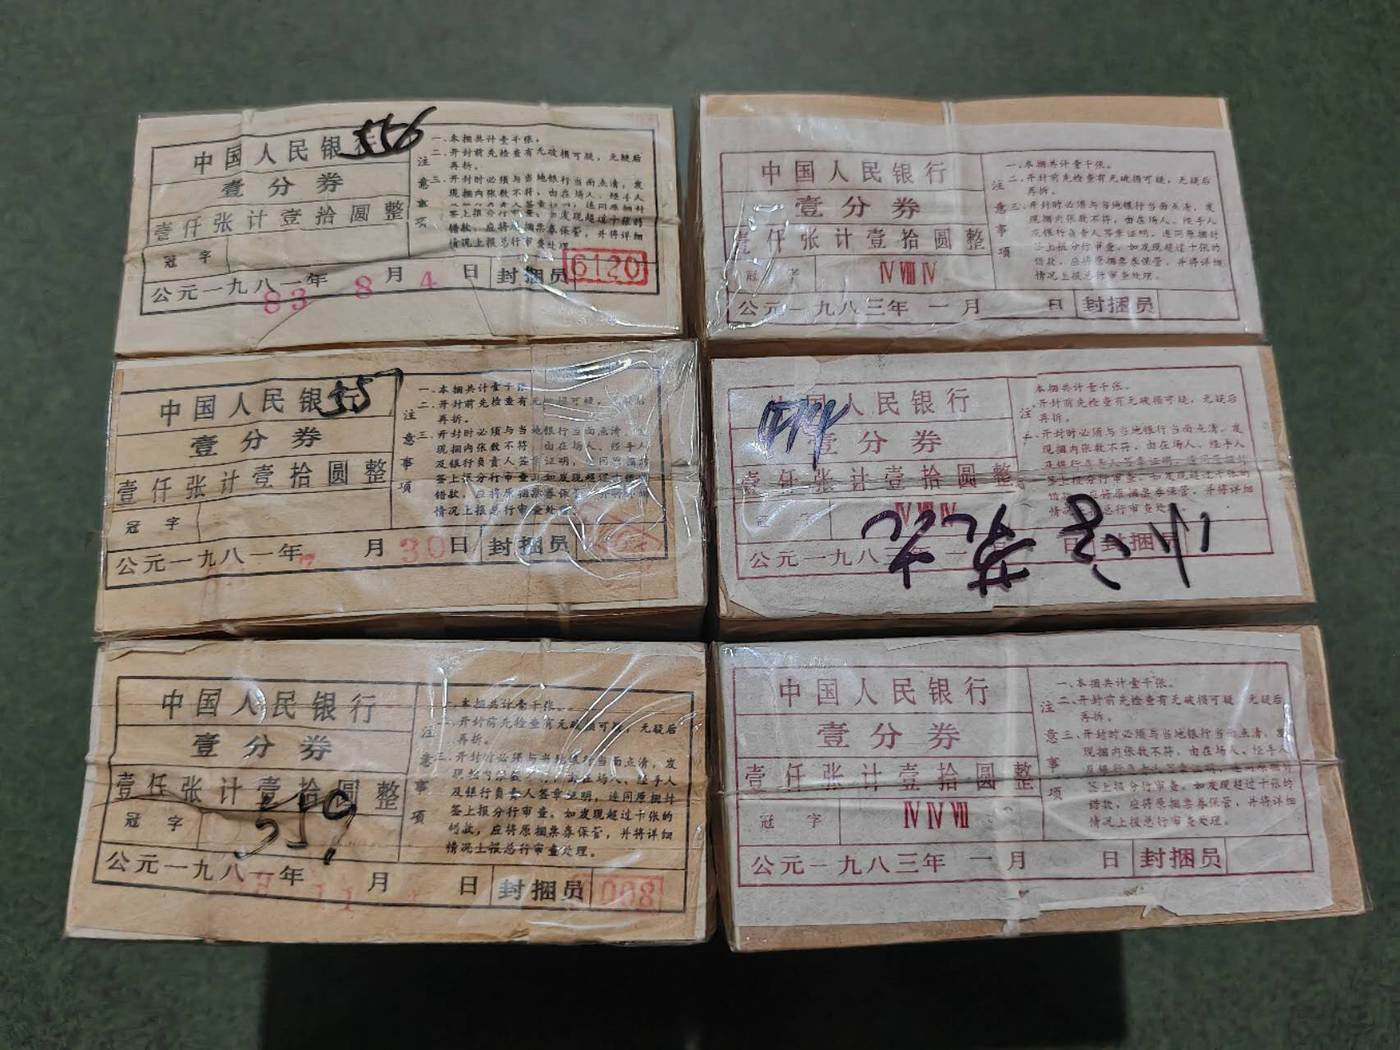 中国人民银行
556
壹分券
壹仟张计壹拾圆整
冠字
公元一九八一年 月 日 封捆员
83 8 4
6120
注意事项
一、本捆共计壹千张。
二、开封前先检查有无破损可疑，无疑后
再拆。
三、开封时必须与当地银行当面点清，发
现捆内张数不符，由在场人、经手人
签上报分行审查。如发现超过十张的
错款，应将原捆票券保管，并将详细
情况上报总行审查处理。
中国人民银行
壹分券
壹仟张计壹拾圆整
冠字 IV VIII IV
公元一九八三年一月 日 封捆员
注意事项
一、本捆共计壹千张。
二、开封前先检查有无破损可疑，无疑后
再拆。
三、开封时必须与当地银行当面点清，发
现捆内张数不符，由在场人、经手人
及银行负责人签章证明，连同原捆封
签上报分行审查。如发现超过十张的
错款，应将原捆票券保管，并将详细
情况上报总行审查处理。
中国人民银行
557
壹分券
壹仟张计壹拾圆整
冠字
公元一九八一年 月 日 封捆员
7 30
注意事项
一、本捆共计壹千张。
二、开封前先检查有无破损可疑，无疑后
再拆。
三、开封时必须与当地银行当面点清，发
现捆内张数不符，由在场人、经手人
及银行负责人签章证明，连同原捆封
签上报分行审查。如发现超过十张的
错款，应将原捆票券保管，并将详细
情况上报总行审查处理。
中国人民银行
壹分券
壹仟张计壹拾圆整
冠字 IV VIII IV
公元一九八三年一月 日 封捆员
本捆共计壹千张。
开封前先检查有无破损可疑，无疑后
再拆。
开封时必须与当地银行当面点清，发
现捆内张数不符，由在场人、经手人
及银行负责人签章证明，连同原捆封
签上报分行审查。如发现超过十张的
错款，应将原捆票券保管，并将详细
情况上报总行审查处理。
中国人民银行
壹分券
壹仟张计壹拾圆整
冠字
519
公元一九八一年 月 日 封捆员
11
008
注意事项
一、本捆共计壹千张。
二、开封前先检查有无破损可疑，无疑后
再拆。
三、开封时必须与当地银行当面点清，发
现捆内张数不符，由在场人、经手人
及银行负责人签章证明，连同原捆封
签上报分行审查。如发现超过十张的
错款，应将原捆票券保管，并将详细
情况上报总行审查处理。
中国人民银行
壹分券
壹仟张计壹拾圆整
冠字 IV IV VII
公元一九八三年一月 日 封捆员
注意事项
一、本捆共计壹千张。
二、开封前先检查有无破损可疑，无疑后
再拆。
三、开封时必须与当地银行当面点清，发
现捆内张数不符，由在场人、经手人
及银行负责人签章证明，连同原捆封
签上报分行审查。如发现超过十张的
错款，应将原捆票券保管，并将详细
情况上报总行审查处理。